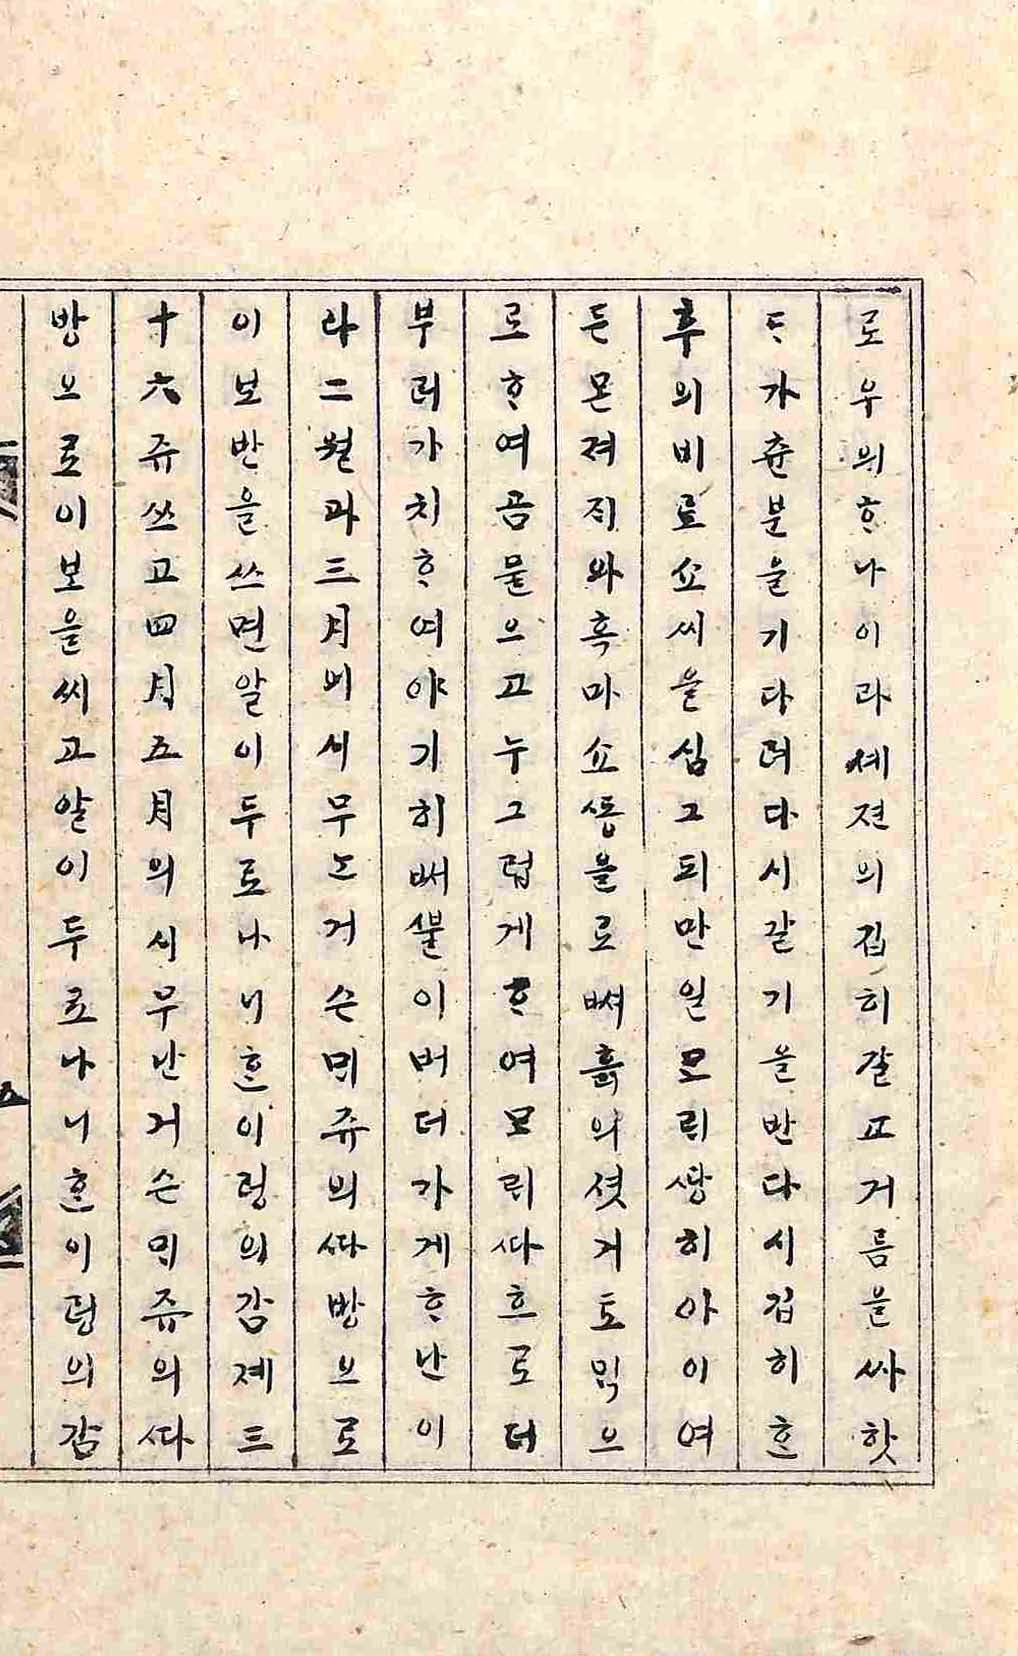 로우의ᄒᆞ나이라셰젼의깁히갈고거름을싸핫
ᄃᆞ가츈분을기다려다시갈기을반다시깁히ᄒᆞᆫ
후의비로쇼씨을심그되만일모ᄅᆡᄯᅡᆼ히아이여
든몬져ᄌᆡ와혹마쇼ᄯᅩᆼ믈로ᄲᅧ흙의셧거토ᄆᆡᆨ으
로ᄒᆞ여곰믙으고누그럽게ᄒᆞ여모ᄅᆡᄯᅡ흐로더
부러가치ᄒᆞ여야기히ᄲᅢᄲᅮᆯ이버더가게ᄒᆞ난이
라二월과三月의시무노거슨ᄆᆡ쥬의ᄯᅡ방으로
이보반을쓰면알이두로나니ᄒᆞᆫ이렁의감졔三
十六쥬쓰고四月五月의시무난거슨ᄆᆡ쥬의ᄯᅡ
방으로이보을씨고알이두로나니ᄒᆞᆫ이렁의감